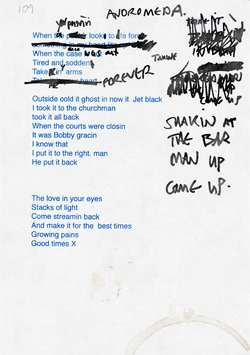 109
ANDROMEDA.
When the looks to fore
When the case WAS OUT
Tired and sodden
Take in arms
FOREVER
Outside cold it ghost in now it Jet black
I took it to the churchman
took it all back
When the courts were closin
It was Bobby gracin
I know that
I put it to the right. man
He put it back
The love in your eyes
Stacks of light
Come streamin back
And make it for the best times
Growing pains
Good times X
COME UP
SHAKIN AT
THE BAR
MAN UP
COME UP.